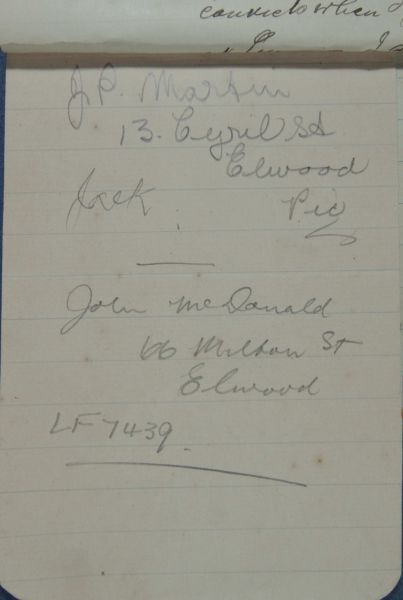 convicts when
J. P. Martin
13. Cyril St
Elwood
Jack
Vic
John McDonald
66 Milton St
Elwood
LF 7439